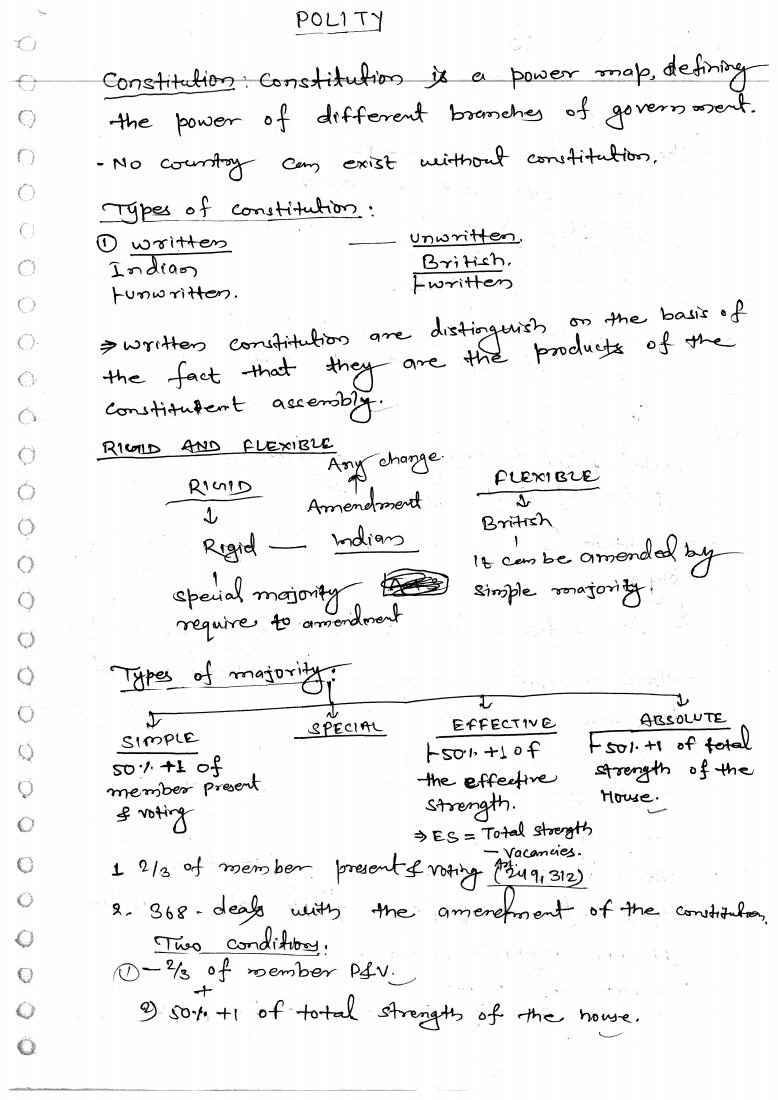 POLITY
Constitution: Constitution is a power map, defining
the power of different branches of government.
- No country can exist without constitution.
Types of constitution:
① written — unwritten.
Indian British.
+unwritten. +written
⇒ written constitution are distinguish on the basis of
the fact that they are the products of the
constituent assembly.
RIGID AND FLEXIBLE
Any change.
↑
RIGID Amendment FLEXIBLE
↓ ↓
Rigid — Indian British
special majority
require to amendment
It can be amended by
simple majority.
Types of majority:
SIMPLE
50% +1 of
member present
& voting
SPECIAL
EFFECTIVE
50% +1 of
the effective
strength.
⇒ ES = Total strength
– vacancies.
ABSOLUTE
50% +1 of total
strength of the
House.
1 2/3 of member present & voting (Art. 249, 312)
2. 368 - deals with the amendment of the constitution.
Two conditions.
① – 2/3 of member P&V.
+
2) 50% +1 of total strength of the house.